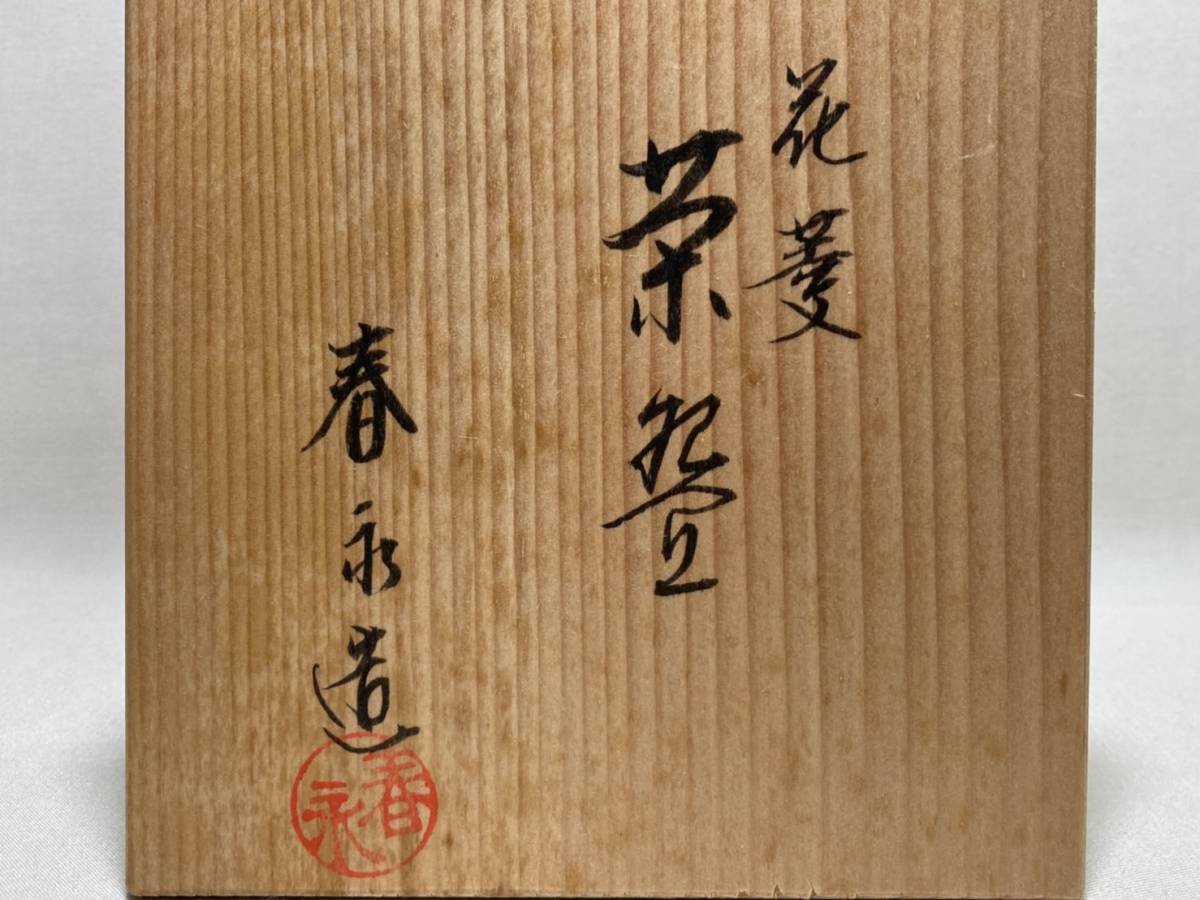 花菱
茶盌
春永造
春永